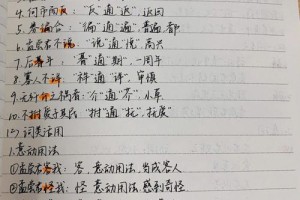 4.何市而反:"反"通"返",返回
5.责偏合:"偏"通"遍",普遍,都
6.孟尝君不说:"说"通"悦",高兴
7.后期年:"期",一周年
8.寡人不祥:"祥"通"详",审慎
9.无纤介之祸者:"介"通"芥",小草
10.不拊爱子其民:"拊"通"抚",抚爱
(二)词类活用
1.意动用法
①孟尝君客我:客,意动用法,当成客人
②孟尝君怪我:怪 意动用法,感到奇怪